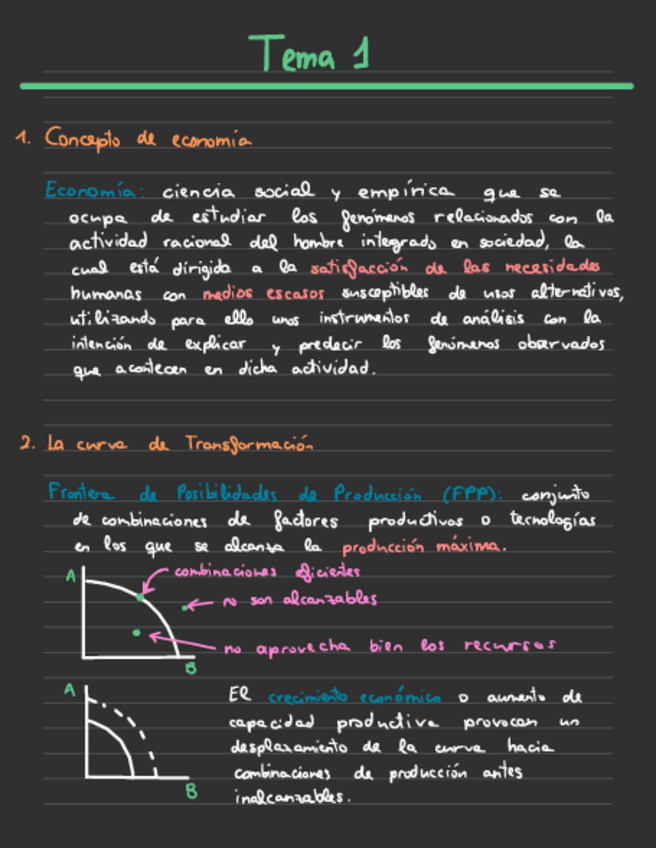 Tema 1
1. Concepto de economía
Economía: ciencia social y empírica que se
ocupa de estudiar los fenómenos relacionados con la
actividad racional del hombre integrado en sociedad, la
cual está dirigida a la satisfacción de las necesidades
humanas con medios escasos susceptibles de usos alternativos,
utilizando para ello unos instrumentos de análisis con la
intención de explicar y predecir los fenómenos observados
que acontecen en dicha actividad.
2. La curva de Transformación
Frontera de Posibilidades de Producción (FPP): conjunto
de combinaciones de factores productivos o tecnologías
en los que se alcanza la producción máxima.
A
combinaciones eficientes
no son alcanzables
no aprovecha bien los recursos
B
A
El crecimiento económico o aumento de
capacidad productiva provocan un
desplazamiento de la curva hacia
combinaciones de producción antes
inalcanzables.
B